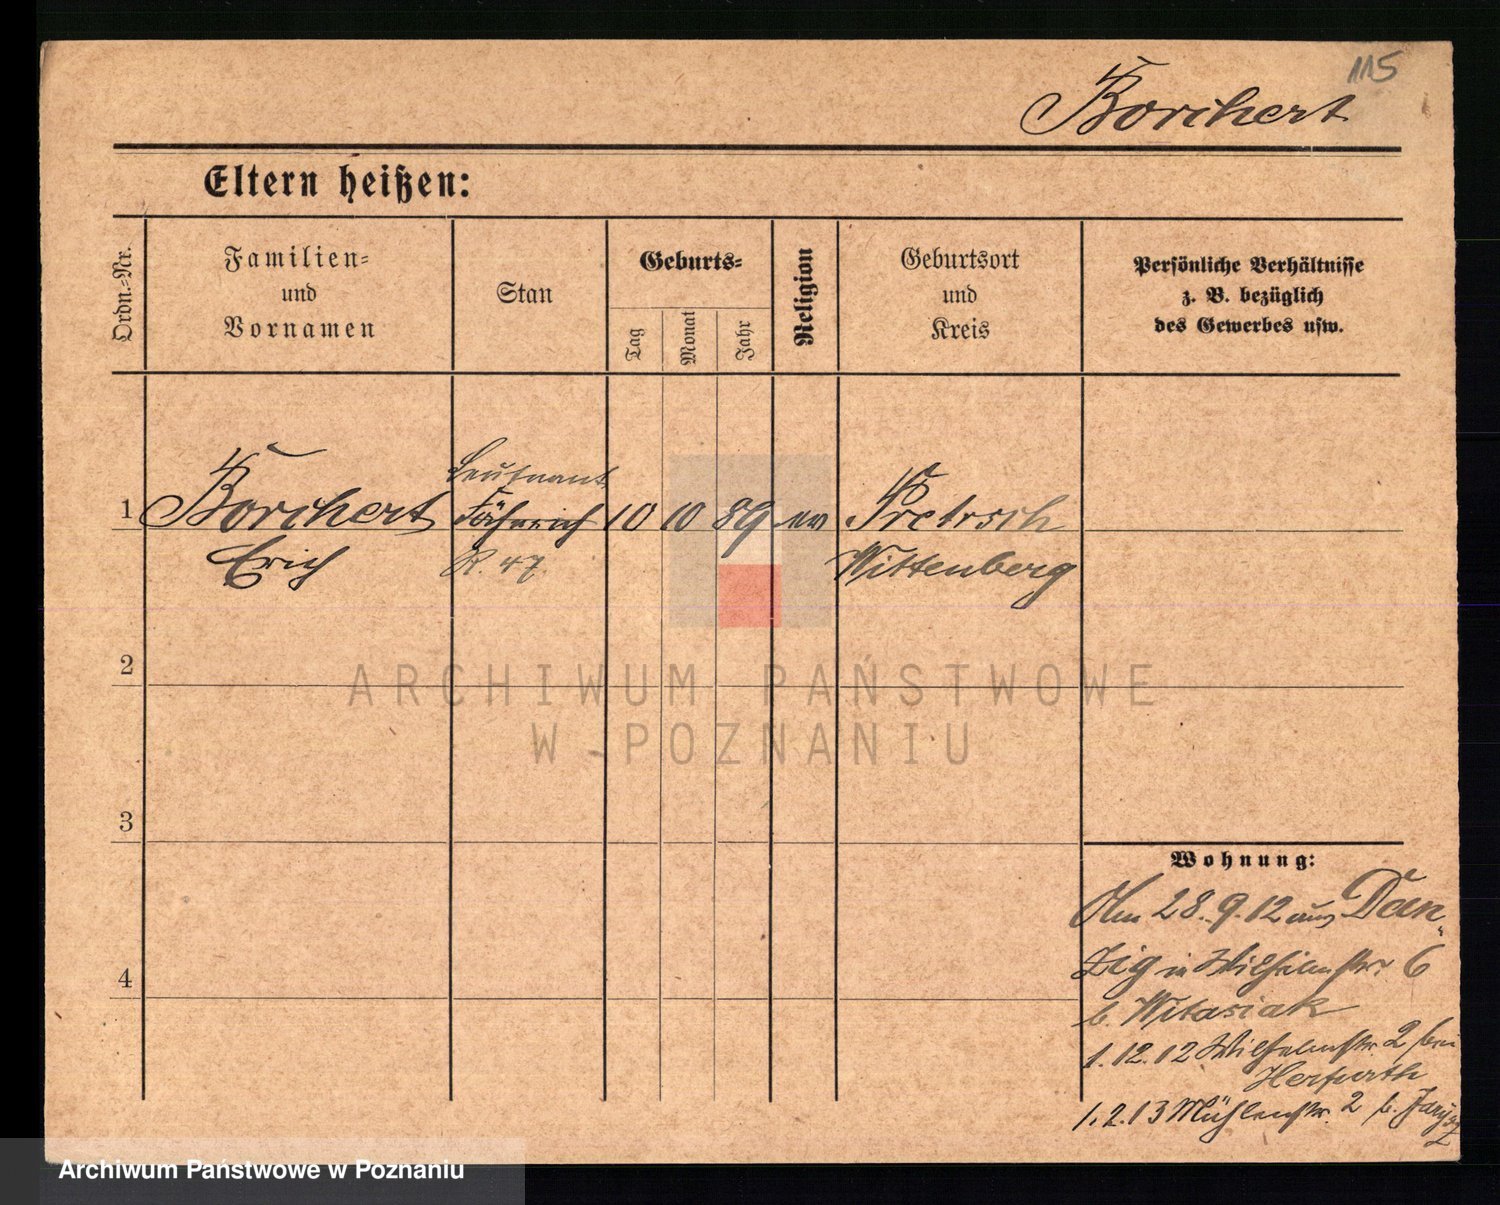 115
Borchert
Eltern heißen:
Ordn.-Nr.
Familien-
und
Vornamen
Stan
Geburts-
Tag
Monat
Jahr
Religion
Geburtsort
und
Kreis
Persönliche Verhältnisse
z. B. bezüglich
des Gewerbes usw.
Leutnant
1 Borchert Fähnrich 10 10 89 ev Pretzsch
Erich R. 47. Wittenberg
2
ARCHIWUM PAŃSTWOWE
W POZNANIU
3
Wohnung:
Am 28.9.12 aus Dan„
4
zig in Wilhelmstr. 6
b. Witasiak
1.12.12 Wilhelmstr. 2 bei
Herfurth
1.2.13 Mühlenstr. 2 b.
Archiwum Państwowe w Poznaniu